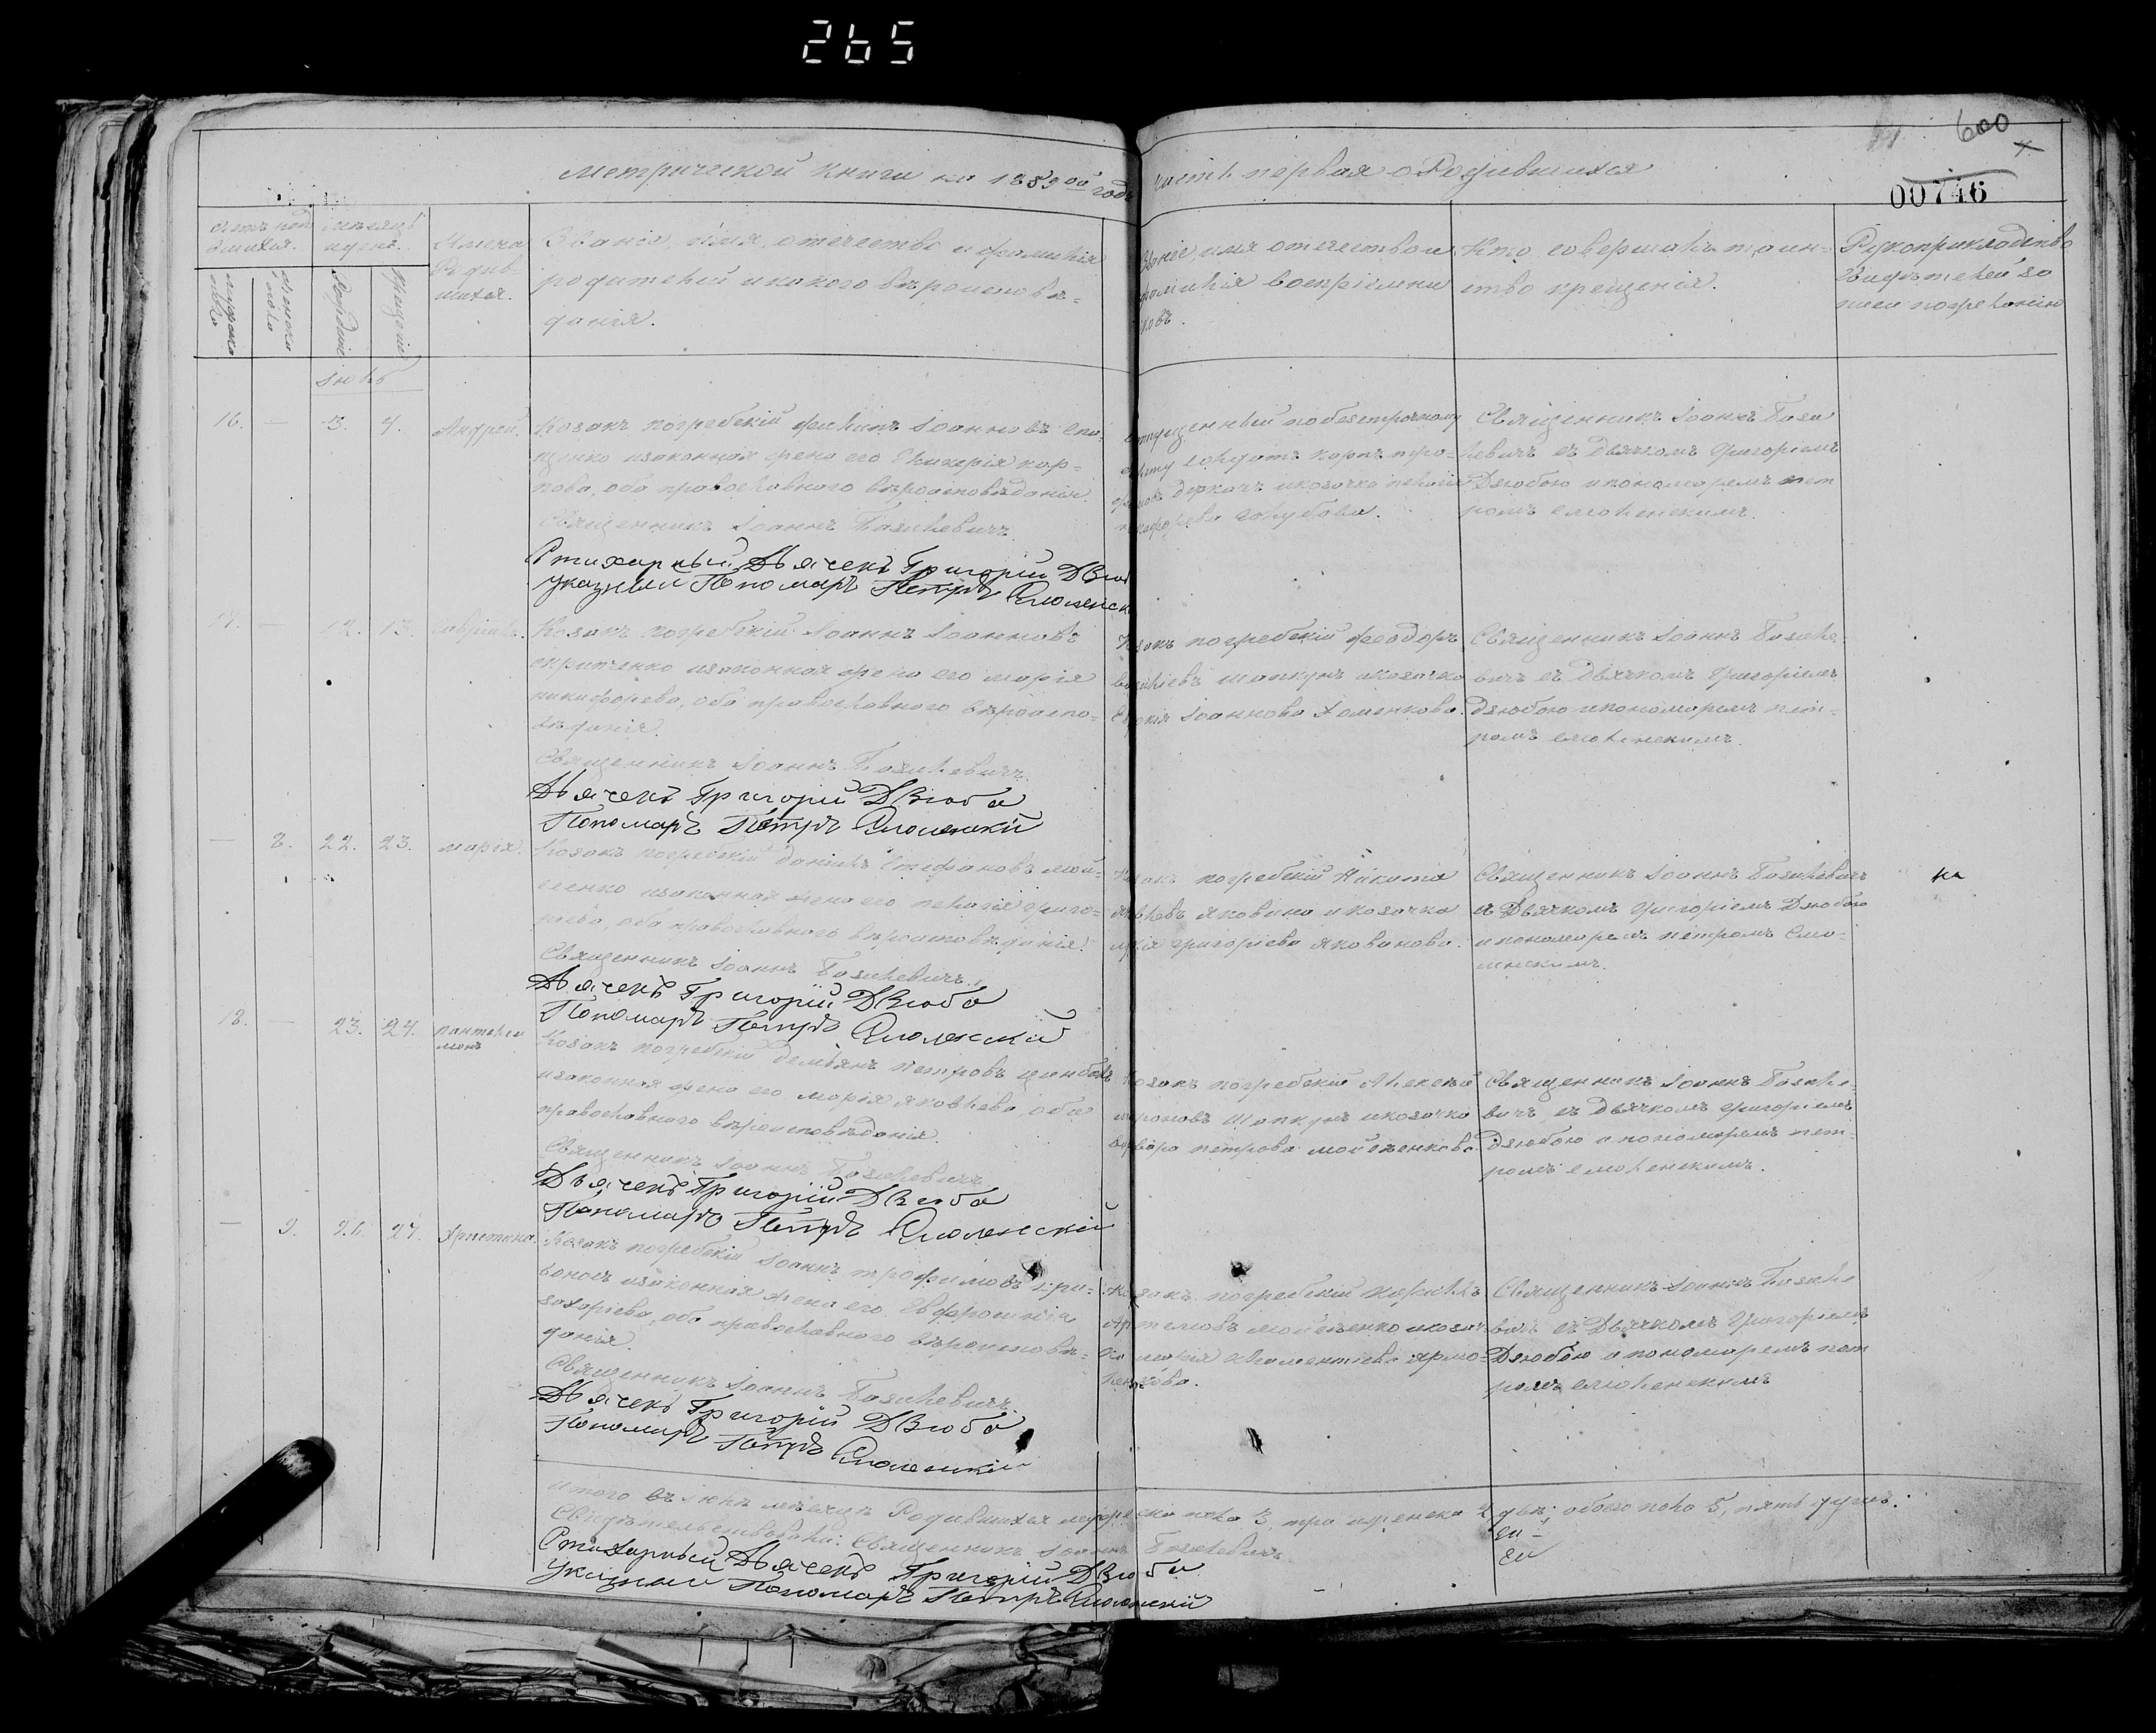 265
600
00746
Метрической книги на 1859ой годъ
часть первая о Родившихся
Имена
Родив-
шихся.
Званіе, имя, отечество и фамилія
родителей и какого вѣроисповѣ-
данія.
Званіе, имя отечество и
фамилія воспріемни
ковъ.
Кто совершалъ таин-
ство крещенія.
Рукоприкладство
Свидѣтелей за
писи по желанію
Іюль
16. — 3. 4. Андрей.
Козакъ погребскій Филипъ Іоанновъ
щенко и законная жена его Гликерія Кар-
пова, оба православного вѣроисповѣданія.
Священникъ Іоаннъ Базилевичъ
Стихарный Дьячекъ Григорій Дзюб
Указный Пономарь Петръ Смоленск
отпущенный по безсрочному
билету солдатъ Карпъ
Деркачъ и козачка Пелагія
Никифорова Голубова.
Священникъ Іоаннъ Бази
левичъ съ дьячкомъ Григоріемъ
Дзюбою и пономаремъ Пет
ромъ Смоленскимъ.
17. — 12. 13. Гавріилъ.
Козакъ погребскій Іоаннъ Іоанновъ
и законная жена его Марія
Никифорова, оба православного вѣроиспо-
вѣданія.
Священникъ Іоаннъ Базилевичъ.
Дьячекъ Григорій Дзюба
Пономарь Петръ Смоленскій
Козакъ погребскій Феодоръ
Васильевъ Шапкунъ и козачка
Евдокія Іоаннова Хоменкова.
Священникъ Іоаннъ Базиле
вичъ съ Дьячкомъ Григоріемъ
Дзюбою и пономаремъ Пет-
ромъ Смоленскимъ.
— 8. 22. 23. Марія.
Козакъ погребскій Даніилъ Стефановъ Мой-
сенко и законная жена его Пелагія Григо-
рьева, оба православного вѣроисповѣданія.
Священникъ Іоаннъ Базилевичъ.
Дьячекъ Григорій Дзюба
Пономарь Петръ Смоленскій
Козакъ погребскій Никита
Яковина и козачка
Марія Григоріева Яковинова.
Священникъ Іоаннъ Базилевичъ
съ Дьячкомъ Григоріемъ Дзюбою
и пономаремъ Петромъ Смо-
ленскимъ.
18. — 23. 24. Пантелей
монъ
Козакъ погребскій Демьянъ Петровъ Цимбалъ
и законная жена его Марія Яковлева, оба
православного вѣроисповѣданія.
Священникъ Іоаннъ Базилевичъ
Дьячекъ Григорій Дзюба
Пономарь Петръ Смоленскій
Козакъ погребскій Алексѣй
Мироновъ Шапкунъ и козачка
Варвара Петрова Мойсѣенкова.
Священникъ Іоаннъ Базиле-
вичъ, съ дьячкомъ Григоріемъ
Дзюбою и пономаремъ Пет-
ромъ Смоленскимъ.
— 9. 26. 27. Христина.
Козакъ погребскій Іоаннъ Трофимовъ Кри-
воносъ и законная жена его Евфросинія
Захаріева, оба православного вѣроисповѣ-
данія.
Священникъ Іоаннъ Базилевичъ.
Дьячекъ Григорій Дзюба
Пономарь Петръ Смоленскій
Козакъ погребскій Кирилъ
Артемовъ Мойсѣенко и козач-
ка Марія Климентіева Ярмо-
ленкова.
Священникъ Іоаннъ Базиле
вичъ съ Дьячкомъ Григоріемъ
Дзюбою и пономаремъ Пет
ромъ Смоленскимъ
Итого въ Іюлѣ мѣсяцѣ Родившихся мужеска пола 3, три женска 2 двѣ; обоего пола 5, пять душъ.
Свидѣтельствовали: Священникъ Іоаннъ Базилевичъ
Стихарный Дьячекъ Григорій Дзюба
Указный Пономарь Петръ Смоленскій